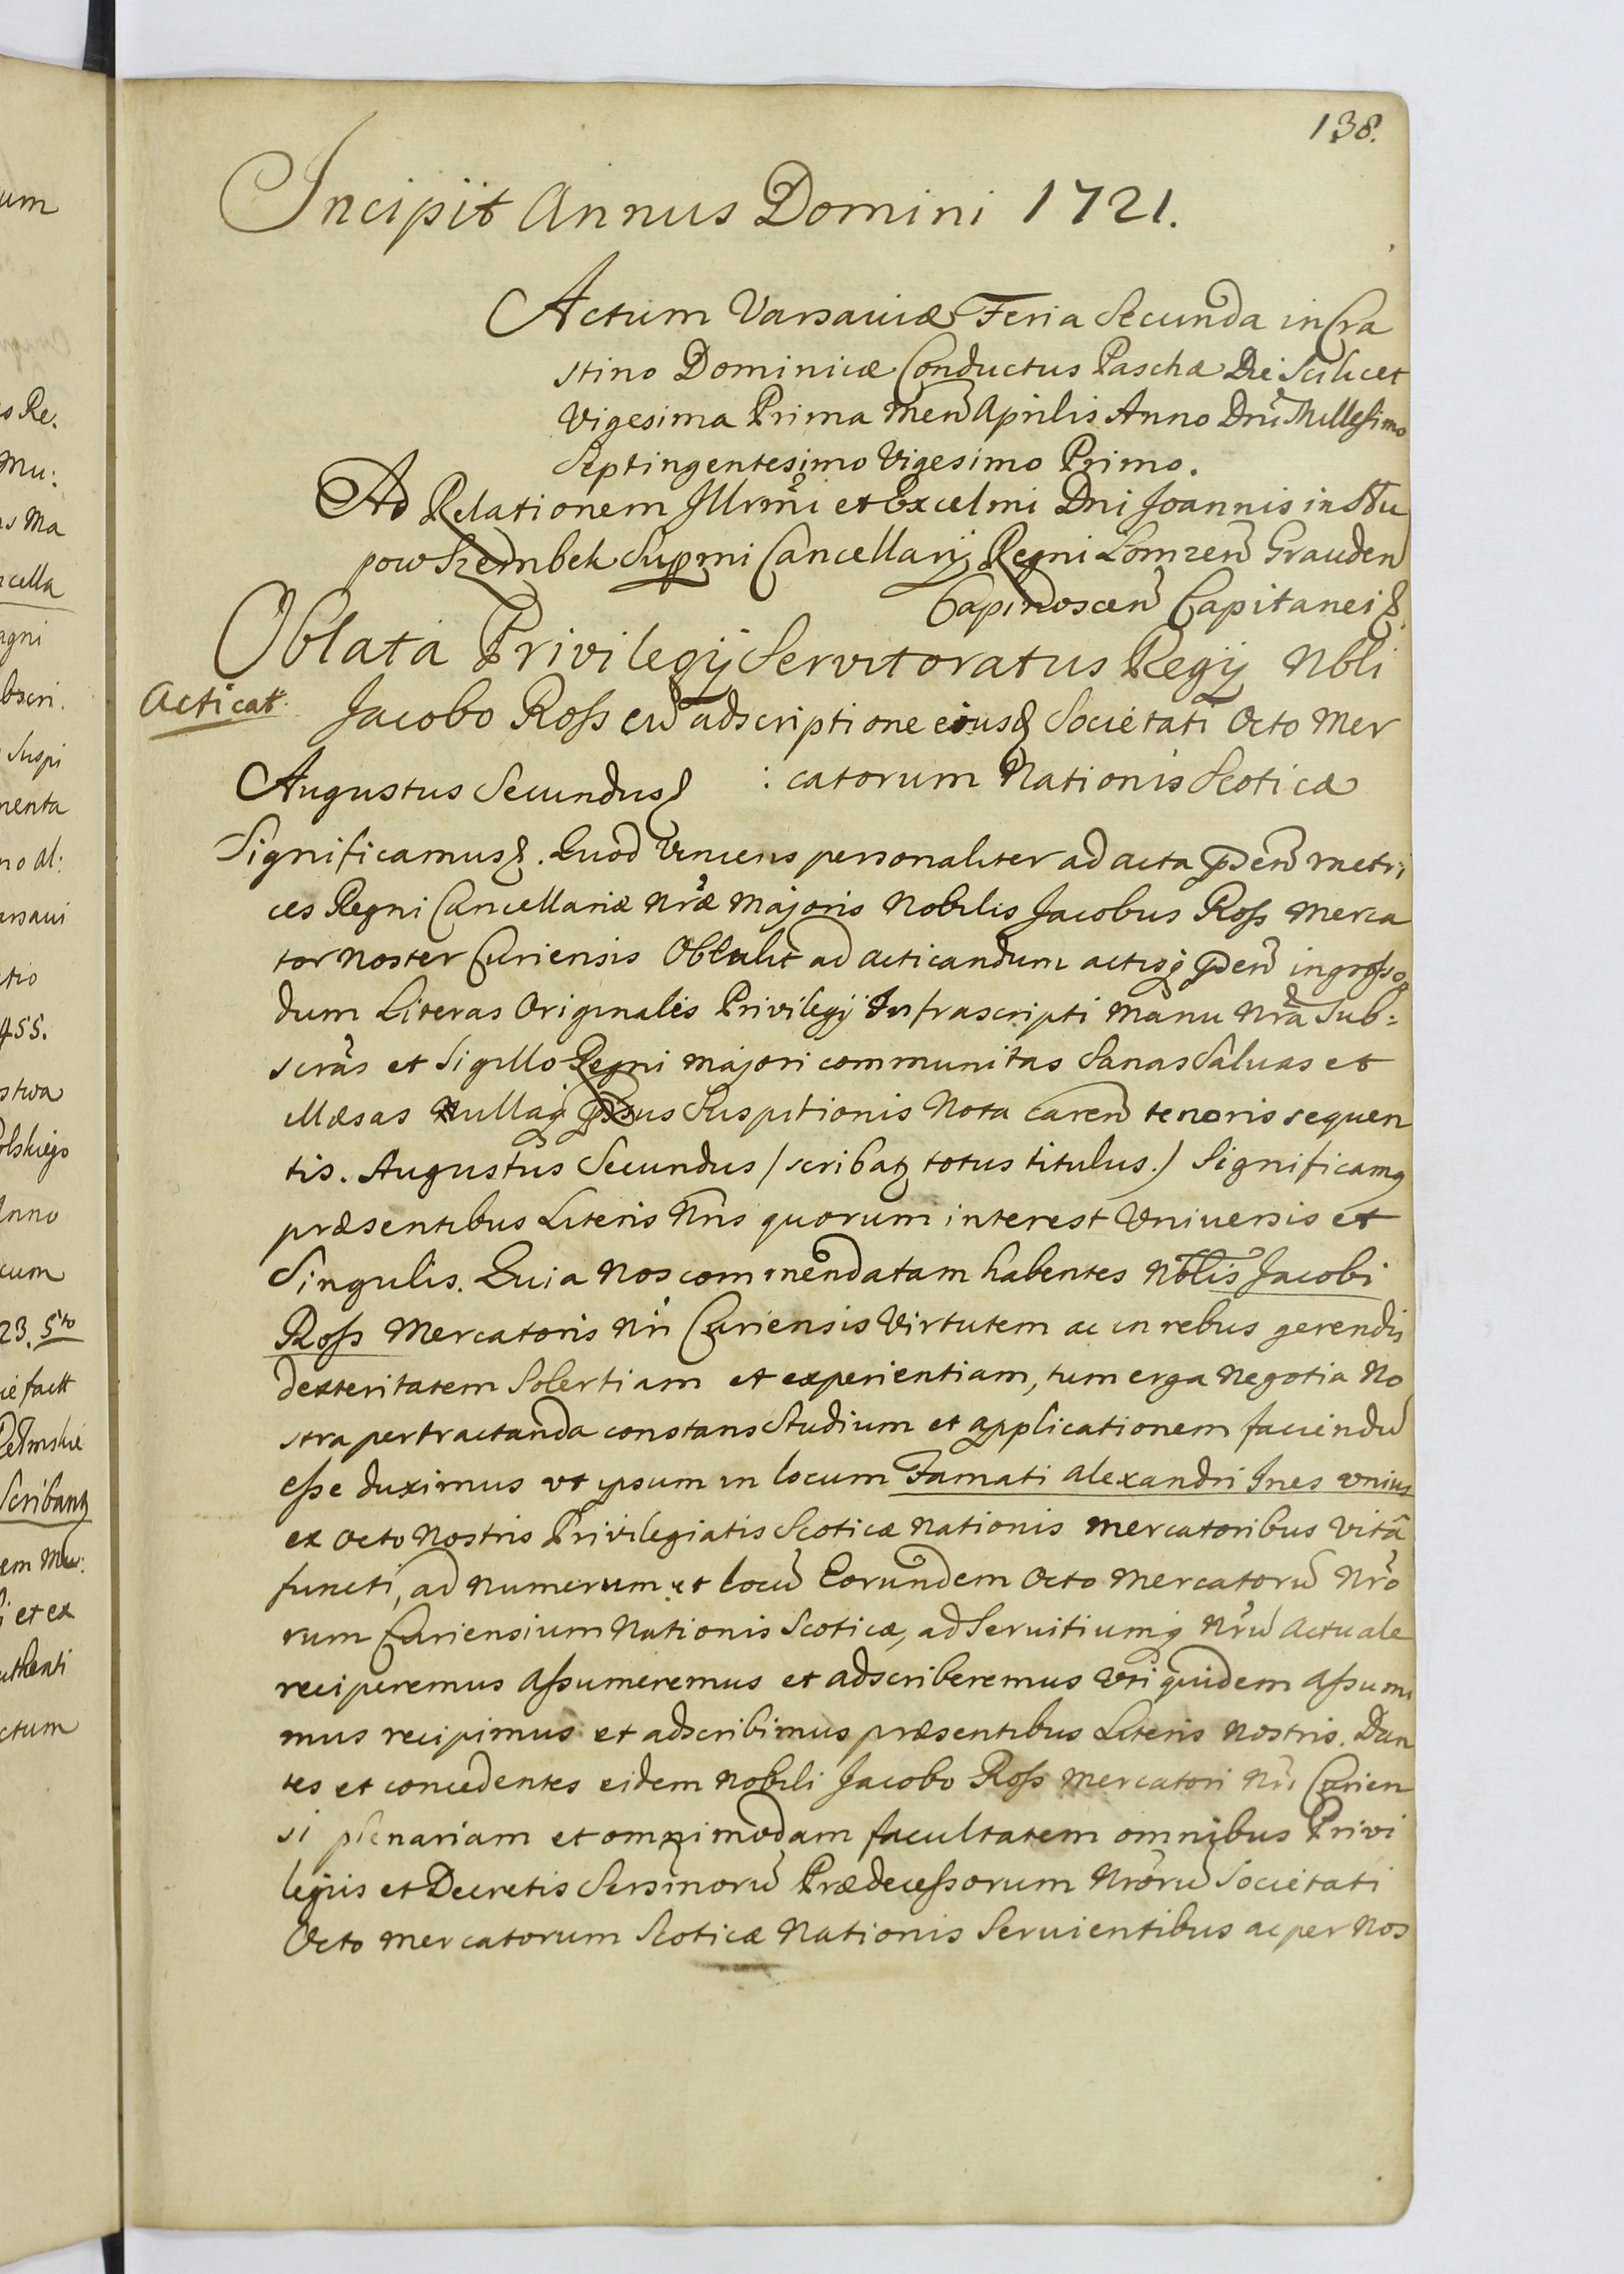 138.
Incipit Annus Domini 1721.
Actum Varsaviæ Feria Secunda in Cra
stino Dominicæ Conductus Paschæ Die Scilicet
Vigesima Prima Men̄ Aprilis Anno Dn̄i Millesimo
Septingentesimo Vigesimo Primo.
Ad Relationem Illrm̄i et Excelmi Dni Joannis in Słu
pow Szembek Supmi Cancellarij Regni Lomzen̄ Grauden
Capitanei
Oblata Privilegij Servitoratus Regij Nbli
Acticat.
Jacobo Ross cū adscriptione eius Societati Octo Mer
: catorum Nationis Scoticæ
Augustus Secundus
Significamus. Quod Veniens personaliter ad acta pn̄den̄ metri
ces Regni Cancellariæ Nr̄æ Majoris Nobilis Jacobus Ross Merca
tor Noster Curiensis Obtulit ad acticandum actisq̃ pn̄den̄ ingrossan
dum Literas Originales Privilegij Infrascripti Manu Nrā Sub=
scrās et Sigillo Regni Majori communitas Sanas Salvas et
illæsas Nullaq̃ Suspitionis Nota caren̄ tenoris sequen
tis. Augustus Secundus /scribatz totus titulus./ Significamq
præsentibus Literis Nr̄is quorum interest Universis et
Singulis. Quia Nos commendatam habentes Nblis Jacobi
Ross Mercatoris Nr̄i Curiensis Virtutem ac in rebus gerendis
dexteritatem Solertiam et experientiam, tum erga Negotia No
stra pertractanda constans Studium et applicationem faciendū
esse duximus vt ipsum in locum Famati Alexandri Ines vnius
ex Octo Nostris Privilegiatis Scoticæ Nationis Mercatoribus Vitâ
functi, ad Numerum et locū Eorundem Octo Mercatorū Nrō
rum Curiensium Nationis Scoticæ, ad Servitiumq̃ Nrū Actuale
reciperemus Assumeremus et adscriberemus Vti quidem Assumi
mus recipimus et adscribimus præsentibus Literis Nostris. Dan
tes et concedentes eidem Nobili Jacobo Ross Mercatori Nr̄i Curien
si plenariam et omnimodam facultatem omnibus Privi
legiis et Decretis Sersmorū Prædecessorum Nrōrū Societati
Octo Mercatorum Scoticæ Nationis Servientibus ac per Nos